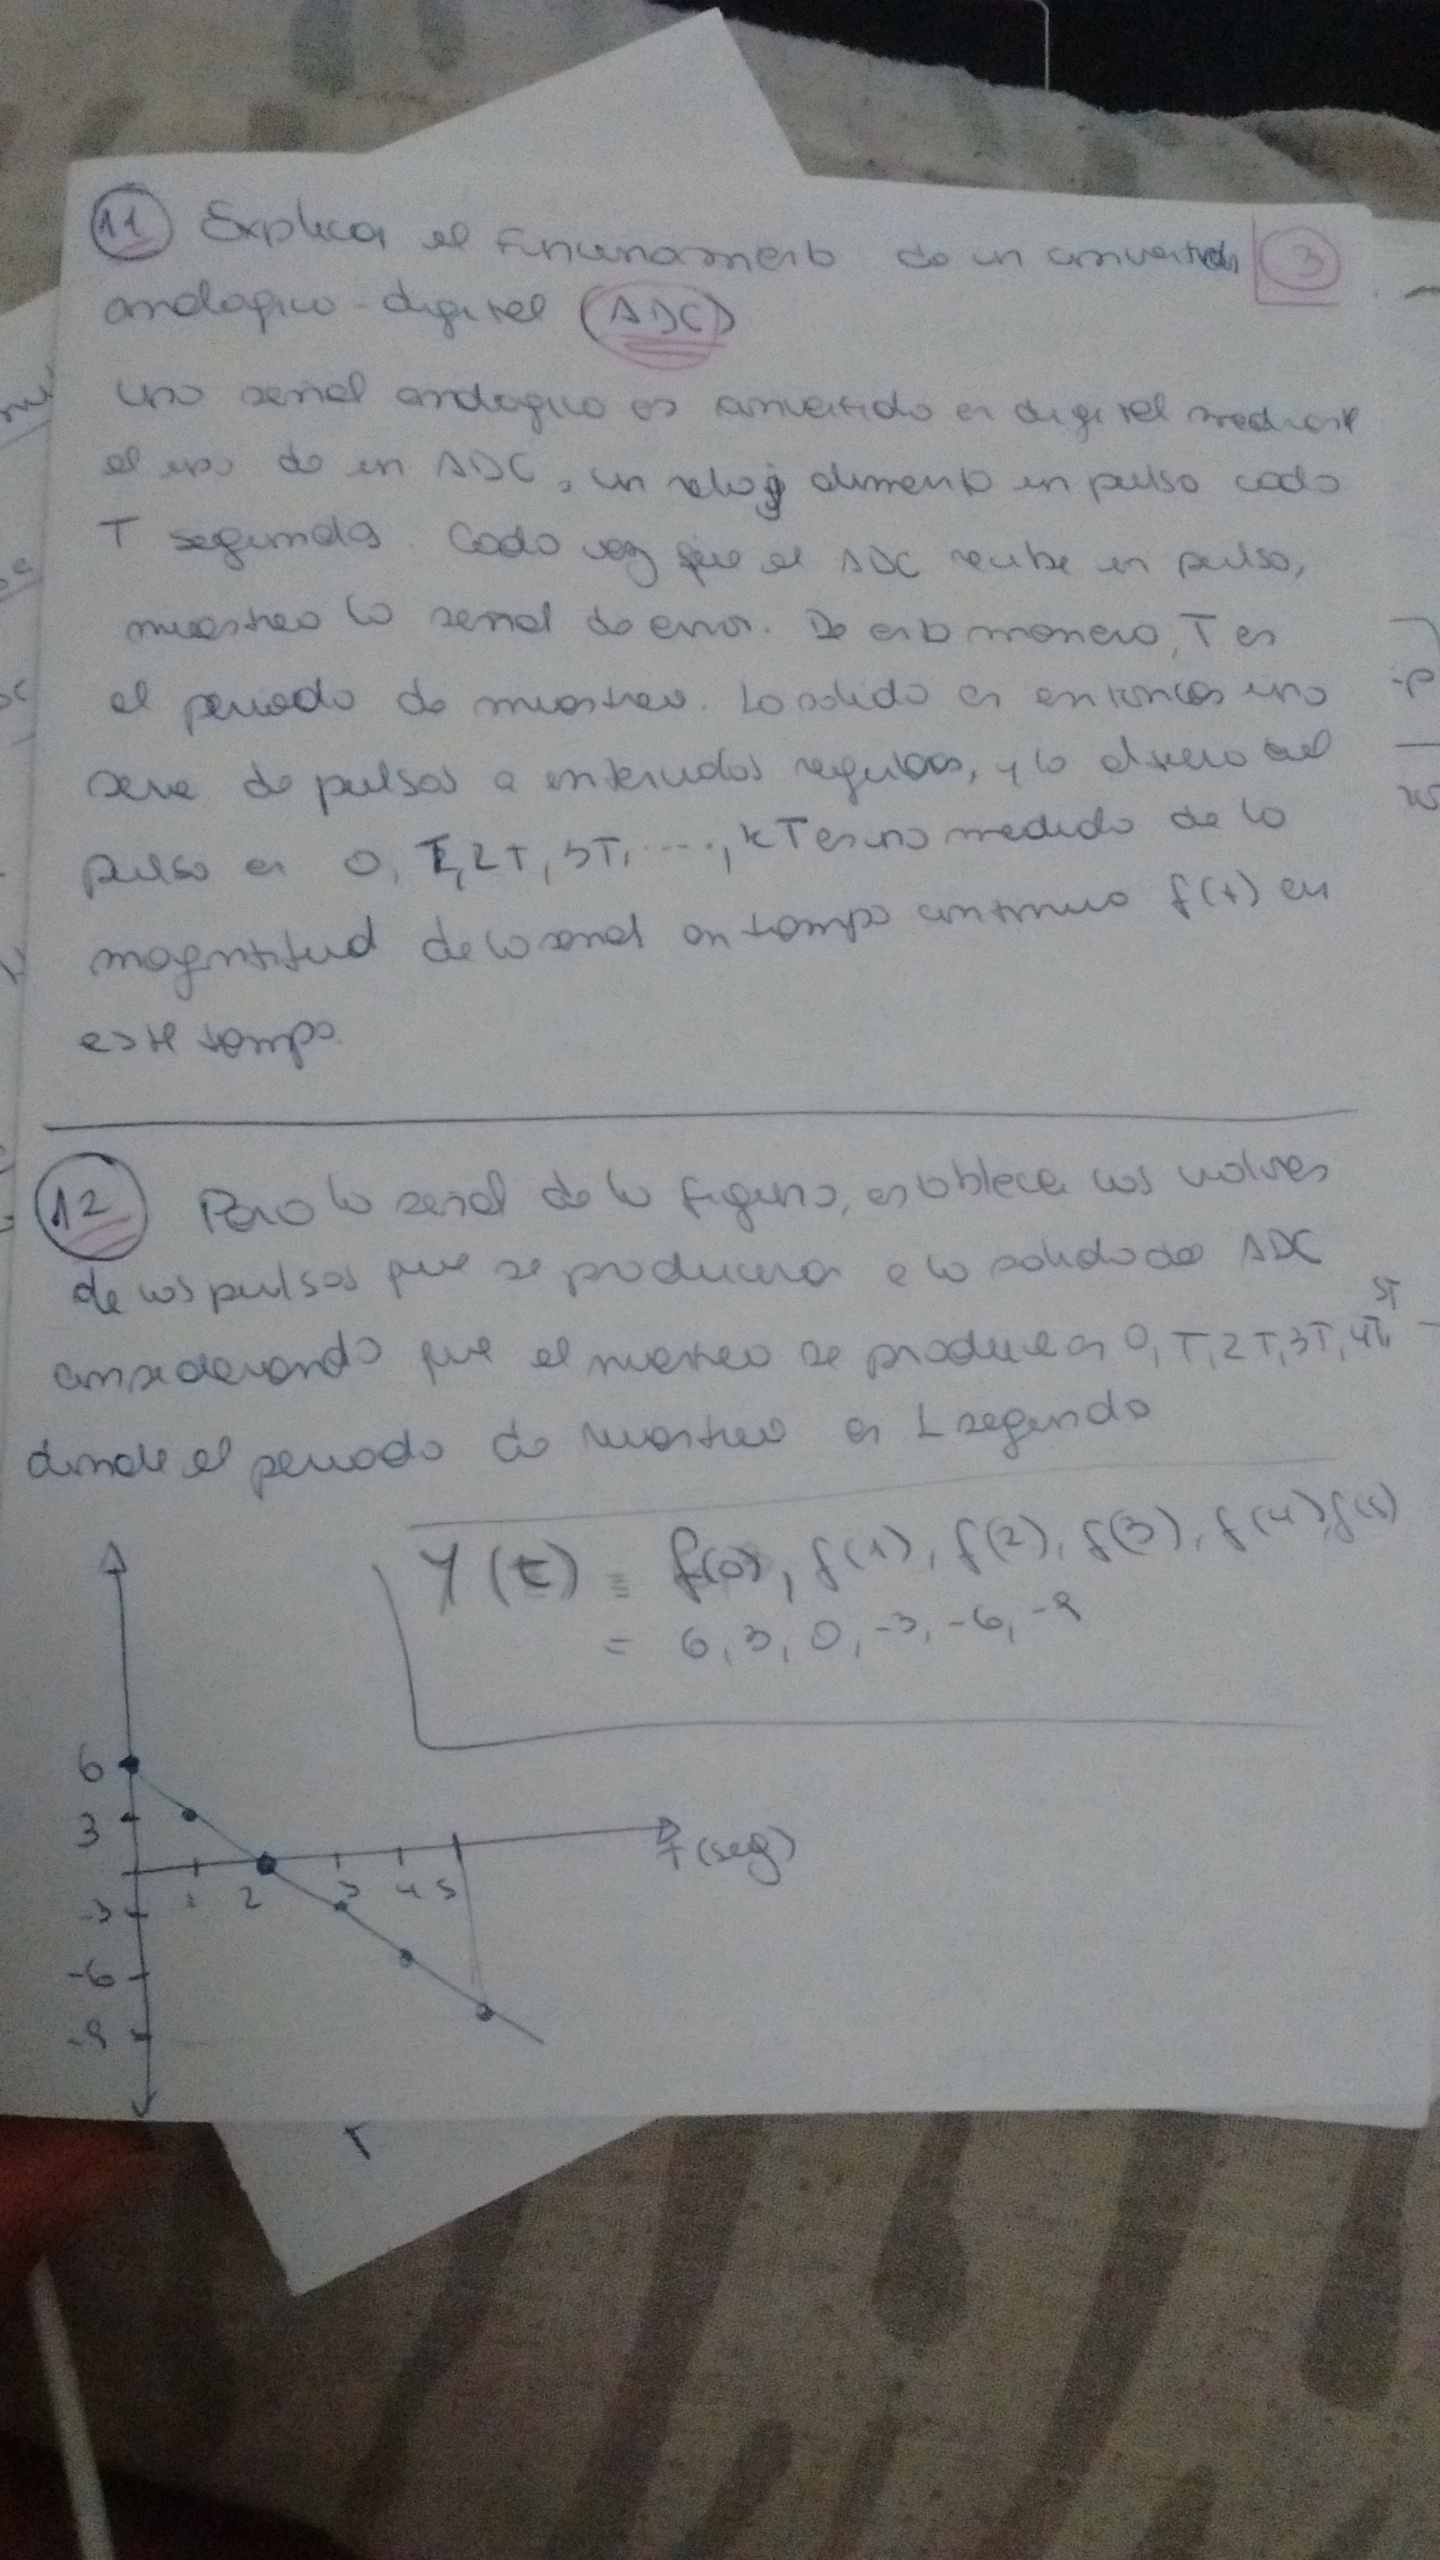 11 Explicar el funcionamiento de un convertidor 3
analogico-digital (ADC)
una señal analogica es convertida en digital mediante
el uso de un ADC, un reloj alimenta un pulso cada
T segundos. Cada vez que el ADC recibe un pulso,
muestrea la señal de error. De esta manera, T es
el periodo de muestreo. La salida es entonces una
serie de pulsos a intervalos regulares, y la altura del
pulso en 0, T, 2T, 3T, ...., kT es una medida de la
magnitud de la señal en tiempo continuo f(t) en
este tiempo.
12 Para la señal de la figura, establecer los valores
de los pulsos que se producen a la salida del ADC
considerando que el muestreo se produce en 0, T, 2T, 3T, 4T, 5T
donde el periodo de muestreo es 1 segundo
Y(t) = f(0), f(1), f(2), f(3), f(4), f(5)
= 6, 3, 0, -3, -6, -9
6
3
t(seg)
1 2 3 4 5
-3
-6
-9